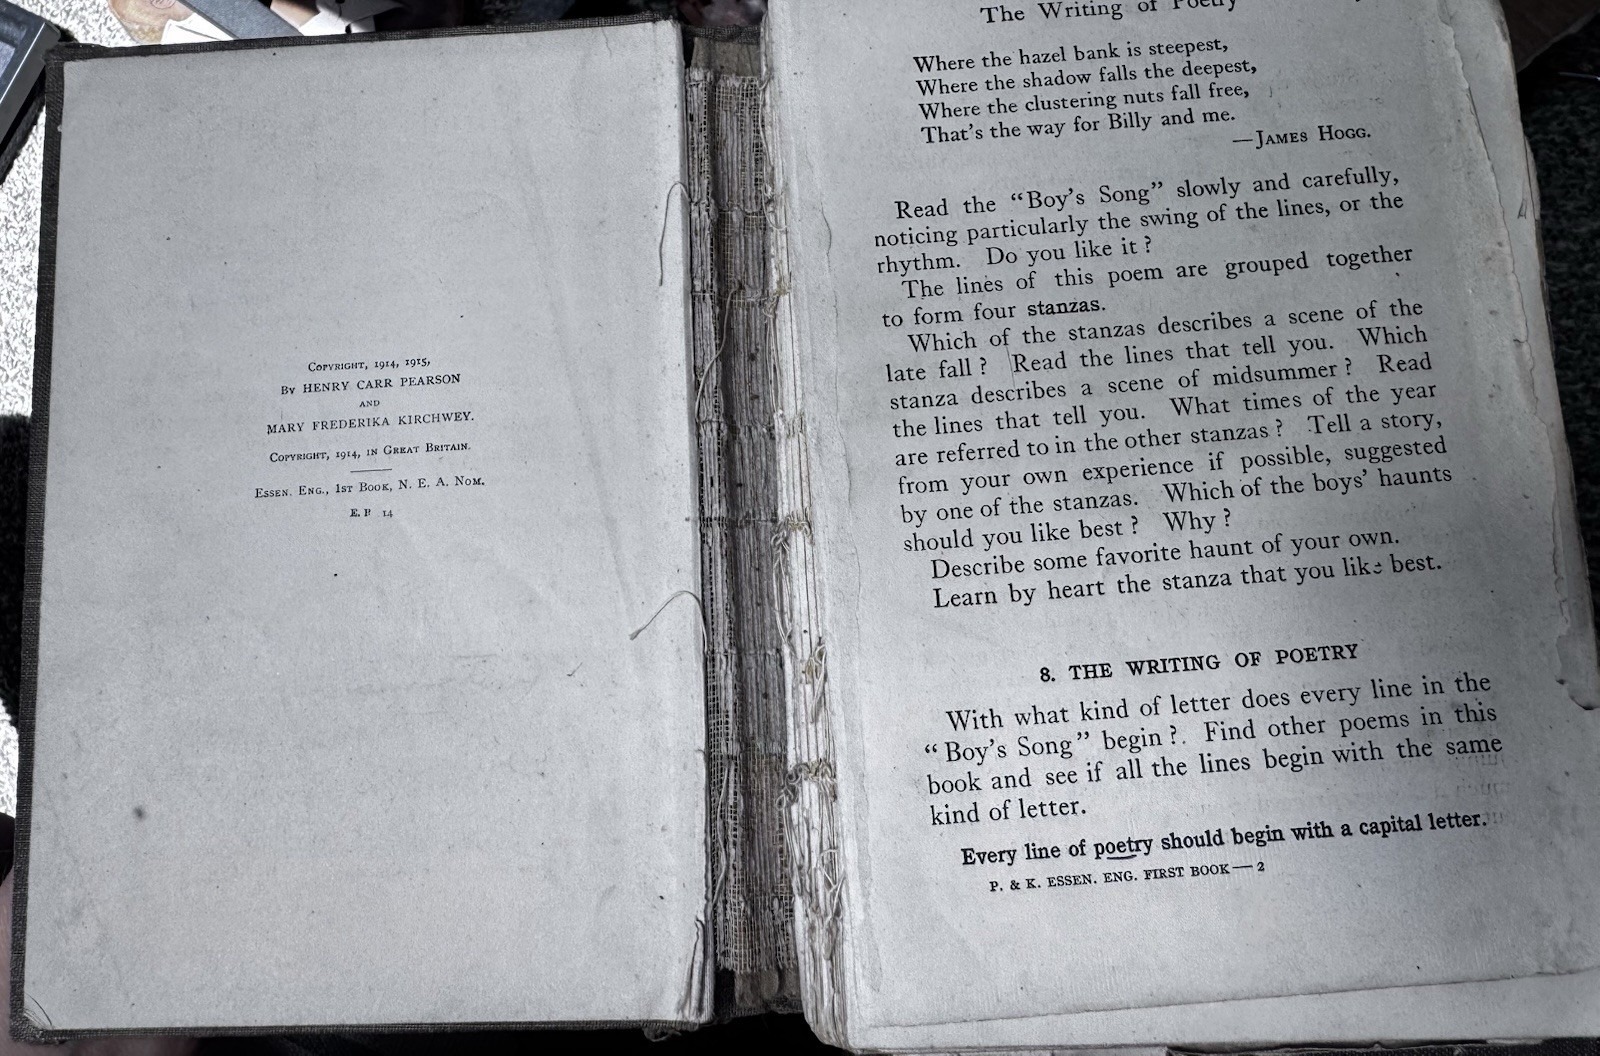 Copyright, 1914, 1915,
By HENRY CARR PEARSON
AND
MARY FREDERIKA KIRCHWEY.
Copyright, 1914, in Great Britain.
Essen. Eng., 1st Book, N. E. A. Nom.
E. P 14
The Writing of Poetry
Where the hazel bank is steepest,
Where the shadow falls the deepest,
Where the clustering nuts fall free,
That's the way for Billy and me.
—James Hogg.
Read the “Boy's Song” slowly and carefully,
noticing particularly the swing of the lines, or the
rhythm. Do you like it?
The lines of this poem are grouped together
to form four stanzas.
Which of the stanzas describes a scene of the
late fall? Read the lines that tell you. Which
stanza describes a scene of midsummer? Read
the lines that tell you. What times of the year
are referred to in the other stanzas? Tell a story,
from your own experience if possible, suggested
by one of the stanzas. Which of the boys' haunts
should you like best? Why?
Describe some favorite haunt of your own.
Learn by heart the stanza that you like best.
8. THE WRITING OF POETRY
With what kind of letter does every line in the
“Boy's Song” begin? Find other poems in this
book and see if all the lines begin with the same
kind of letter.
Every line of poetry should begin with a capital letter.
P. & K. ESSEN. ENG. FIRST BOOK—2